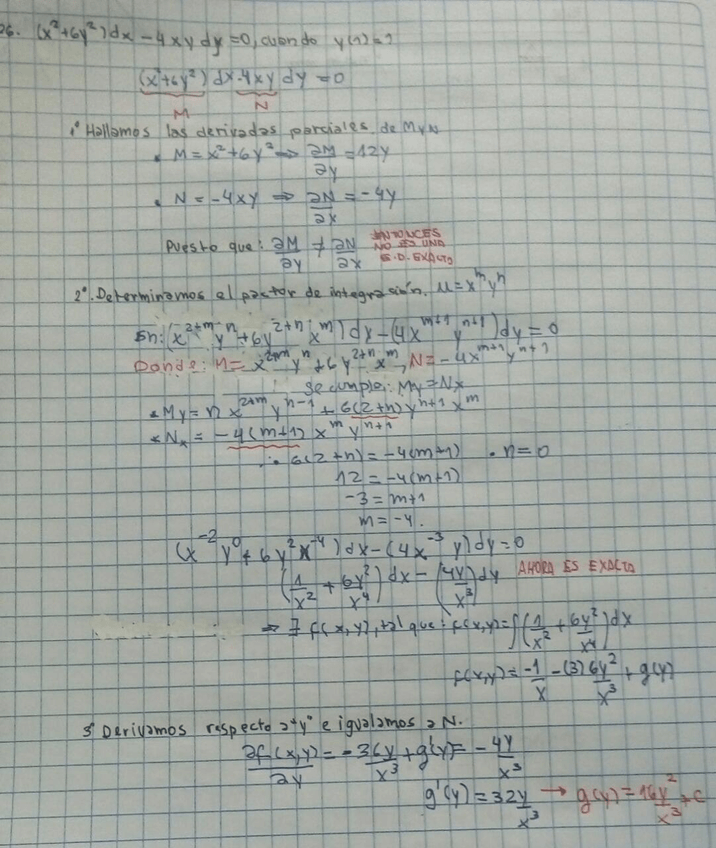 26. (x²+6y²)dx - 4xy dy = 0, cuando y(1)=1
(x²+6y²) dx - 4xy dy = 0
M N
1° Hallamos las derivadas parciales de M y N
• M = x²+6y² ⇒ ∂M/∂y = 12y
• N = -4xy ⇒ ∂N/∂x = -4y
Puesto que: ∂M/∂y ≠ ∂N/∂x ENTONCES NO ES UNA E.D. EXACTO
2°. Determinamos el factor de integración. u = x^m y^n
En: (x^(2+m) y^n + 6y^(2+n) x^m) dx - (4x^(m+1) y^(n+1)) dy = 0
Donde: M = x^(2+m) y^n + 6y^(2+n) x^m, N = -4x^(m+1) y^(n+1)
se cumple: My = Nx
• My = n x^(2+m) y^(n-1) + 6(2+n) y^(n+1) x^m
• Nx = -4(m+1) x^m y^(n+1)
∴ 6(2+n) = -4(m+1) • n = 0
12 = -4(m+1)
-3 = m+1
m = -4.
(x^-2 y^0 + 6y² x^-4) dx - (4x^-3 y) dy = 0
(1/x² + 6y²/x⁴) dx - (4y/x³) dy AHORA ES EXACTO
⇒ ∃ f(x,y), tal que: f(x,y) = ∫(1/x² + 6y²/x⁴) dx
f(x,y) = -1/x - (3)6y²/x³ + g(y)
3° Derivamos respecto a "y" e igualamos a N.
∂f(x,y)/∂y = -36y/x³ + g'(y) = -4y/x³
g'(y) = 32y/x³ → g(y) = 16y²/x³ + c